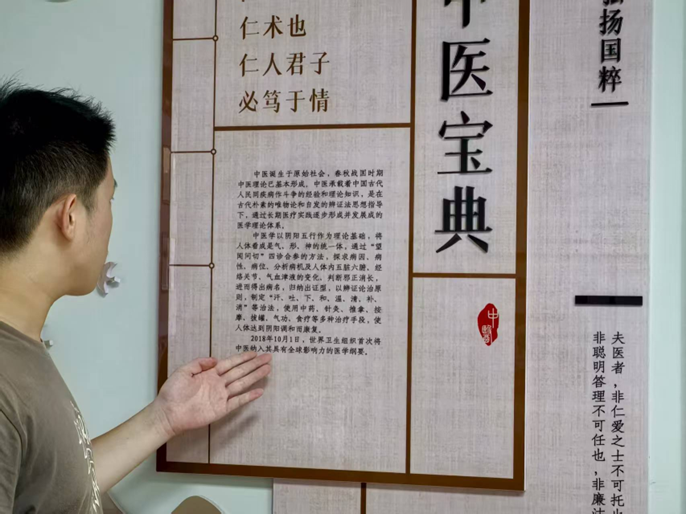 仁术也
仁人君子
必笃于情
中医诞生于原始社会，春秋战国时期
中医理论已基本形成。中医承载着中国古代
人民同疾病作斗争的经验和理论知识，是在
古代朴素的唯物论和自发的辩证法思想指导
下，通过长期医疗实践逐步形成并发展成的
医学理论体系。
中医学以阴阳五行作为理论基础，将
人体看成是气、形、神的统一体，通过“望
闻问切”四诊合参的方法，探求病因、病
性、病位、分析病机及人体内五脏六腑、经
络关节、气血津液的变化、判断邪正消长，
进而得出病名，归纳出证型，以辨证论治原
则，制定“汗、吐、下、和、温、清、补、
消”等治法，使用中药、针灸、推拿、按
摩、拔罐、气功、食疗等多种治疗手段，使
人体达到阴阳调和而康复。
2018年10月1日，世界卫生组织首次将
中医纳入其具有全球影响力的医学纲要。
中医宝典
中醫
弘扬国粹
夫医者，非仁爱之士不可托也
非聪明答理不可任也，非廉洁